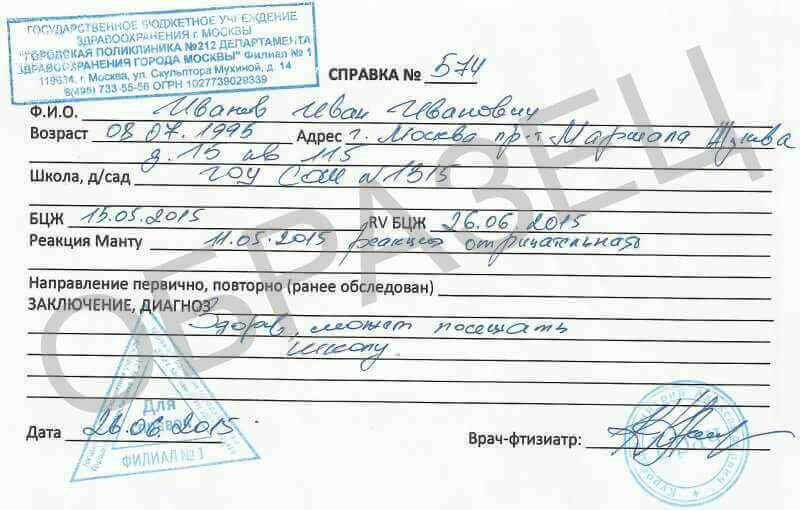 ГОСУДАРСТВЕННОЕ БЮДЖЕТНОЕ УЧРЕЖДЕНИЕ
ЗДРАВООХРАНЕНИЯ г. МОСКВЫ
"ГОРОДСКАЯ ПОЛИКЛИНИКА №212 ДЕПАРТАМЕНТА
ЗДРАВООХРАНЕНИЯ ГОРОДА МОСКВЫ" Филиал № 1
119634, г. Москва, ул. Скульптора Мухиной, д. 14
8(495) 733-55-56 ОГРН 1027739029339
СПРАВКА № 574
Ф.И.О. Иванов Иван Иванович
Возраст 08.07.1995 Адрес г. Москва пр-т Маршала Жукова
д. 15 кв 115
Школа, д/сад ГОУ СОШ №1315
БЦЖ 15.05.2015 RV БЦЖ 26.06.2015
Реакция Манту 11.05.2015 реакция отрицательная
Направление первично, повторно (ранее обследован)
ЗАКЛЮЧЕНИЕ, ДИАГНОЗ
Здоров, может посещать
школу.
ОБРАЗЕЦ
Для
Дата 26.06.2015
ФИЛИАЛ №1
Врач-фтизиатр: